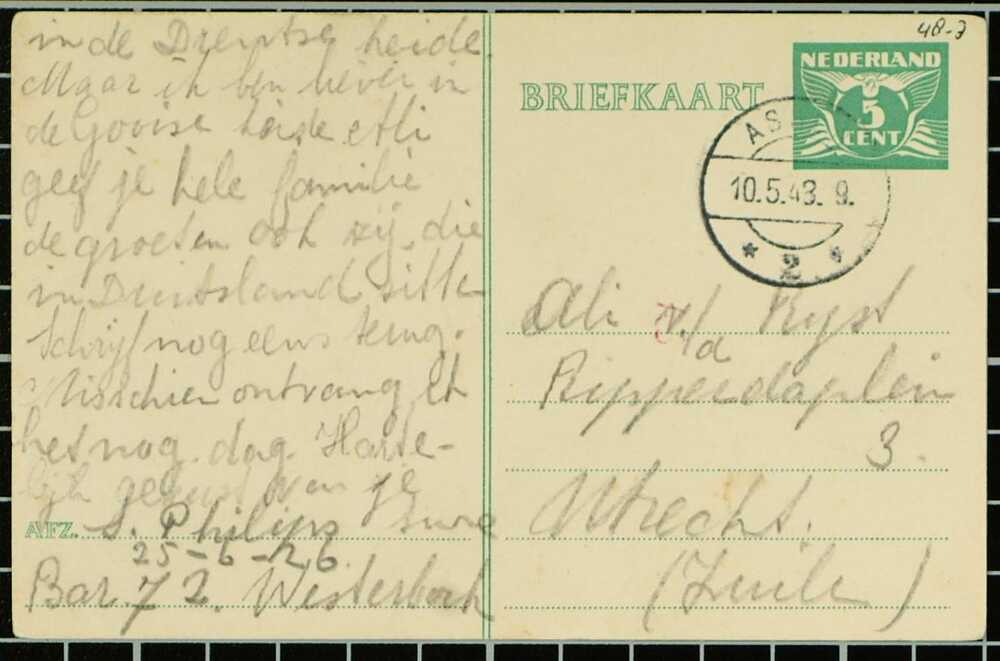 in de Drentse heide.
Maar ik ben liever in
de Gooise heide Ali
geef je hele familie
de groeten ook zij die
in Duitsland zitte
Schrijf nog eens terug.
Misschien ontvang ik
het nog. dag Harte-
lijk gegroet van je
AFZ. S. Philips
25-6-26.
Bar 72. Westerbork
48-3
NEDERLAND
5
CENT
BRIEFKAART
AS
10.5.43. 9.
* 2 *
Ali v/d Ryst
Ripperdaplein
3.
Utrecht.
(Zuile)